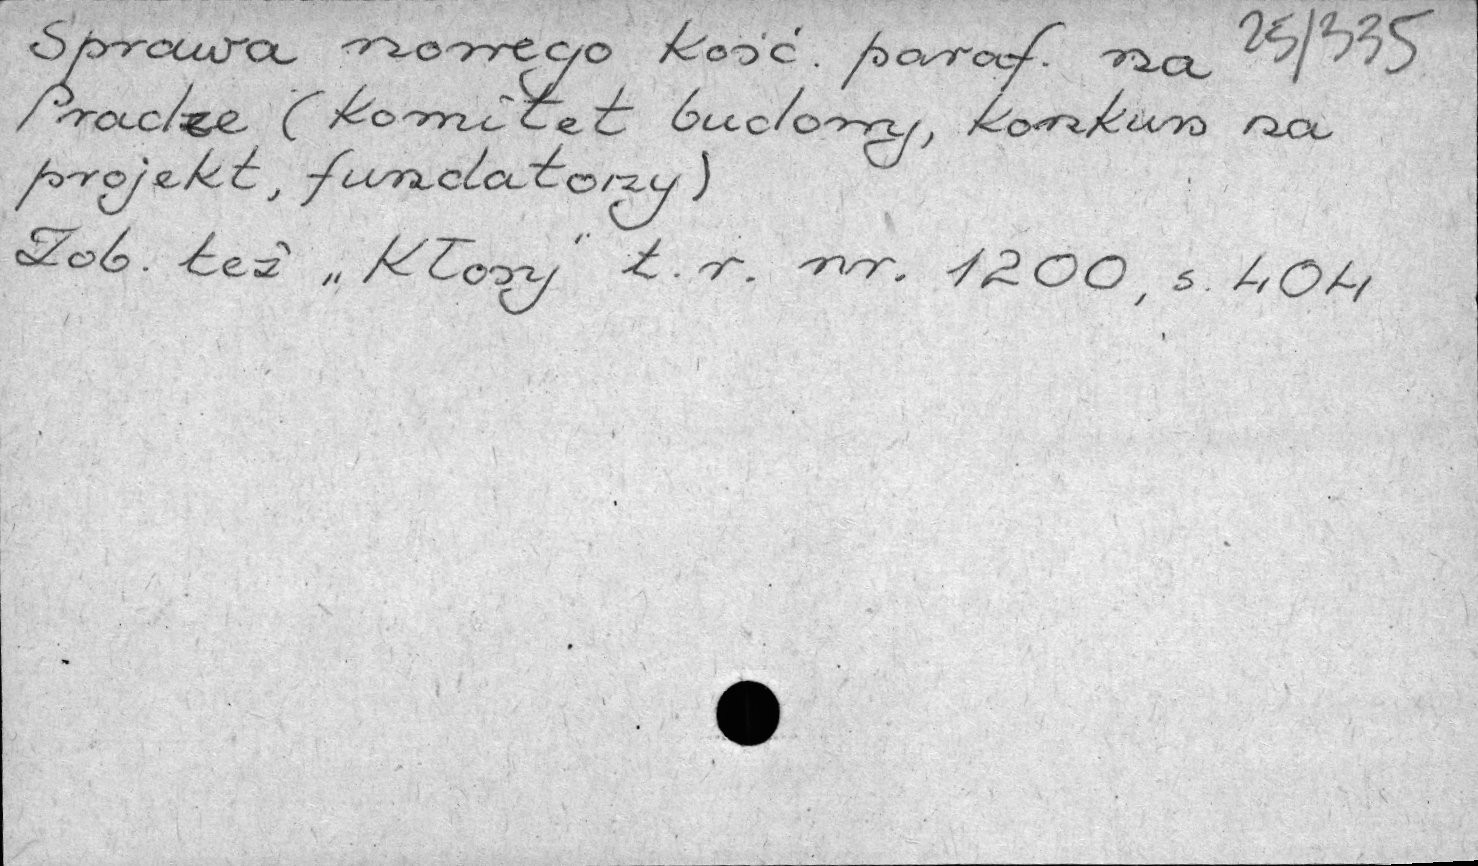 Sprawa nowego kość. paraf. na 25/335
Pradze (komitet budowy, konkurs na
projekt, fundatorzy)
Zob. też „Kłosy" t. r. nr. 1200, s. 404